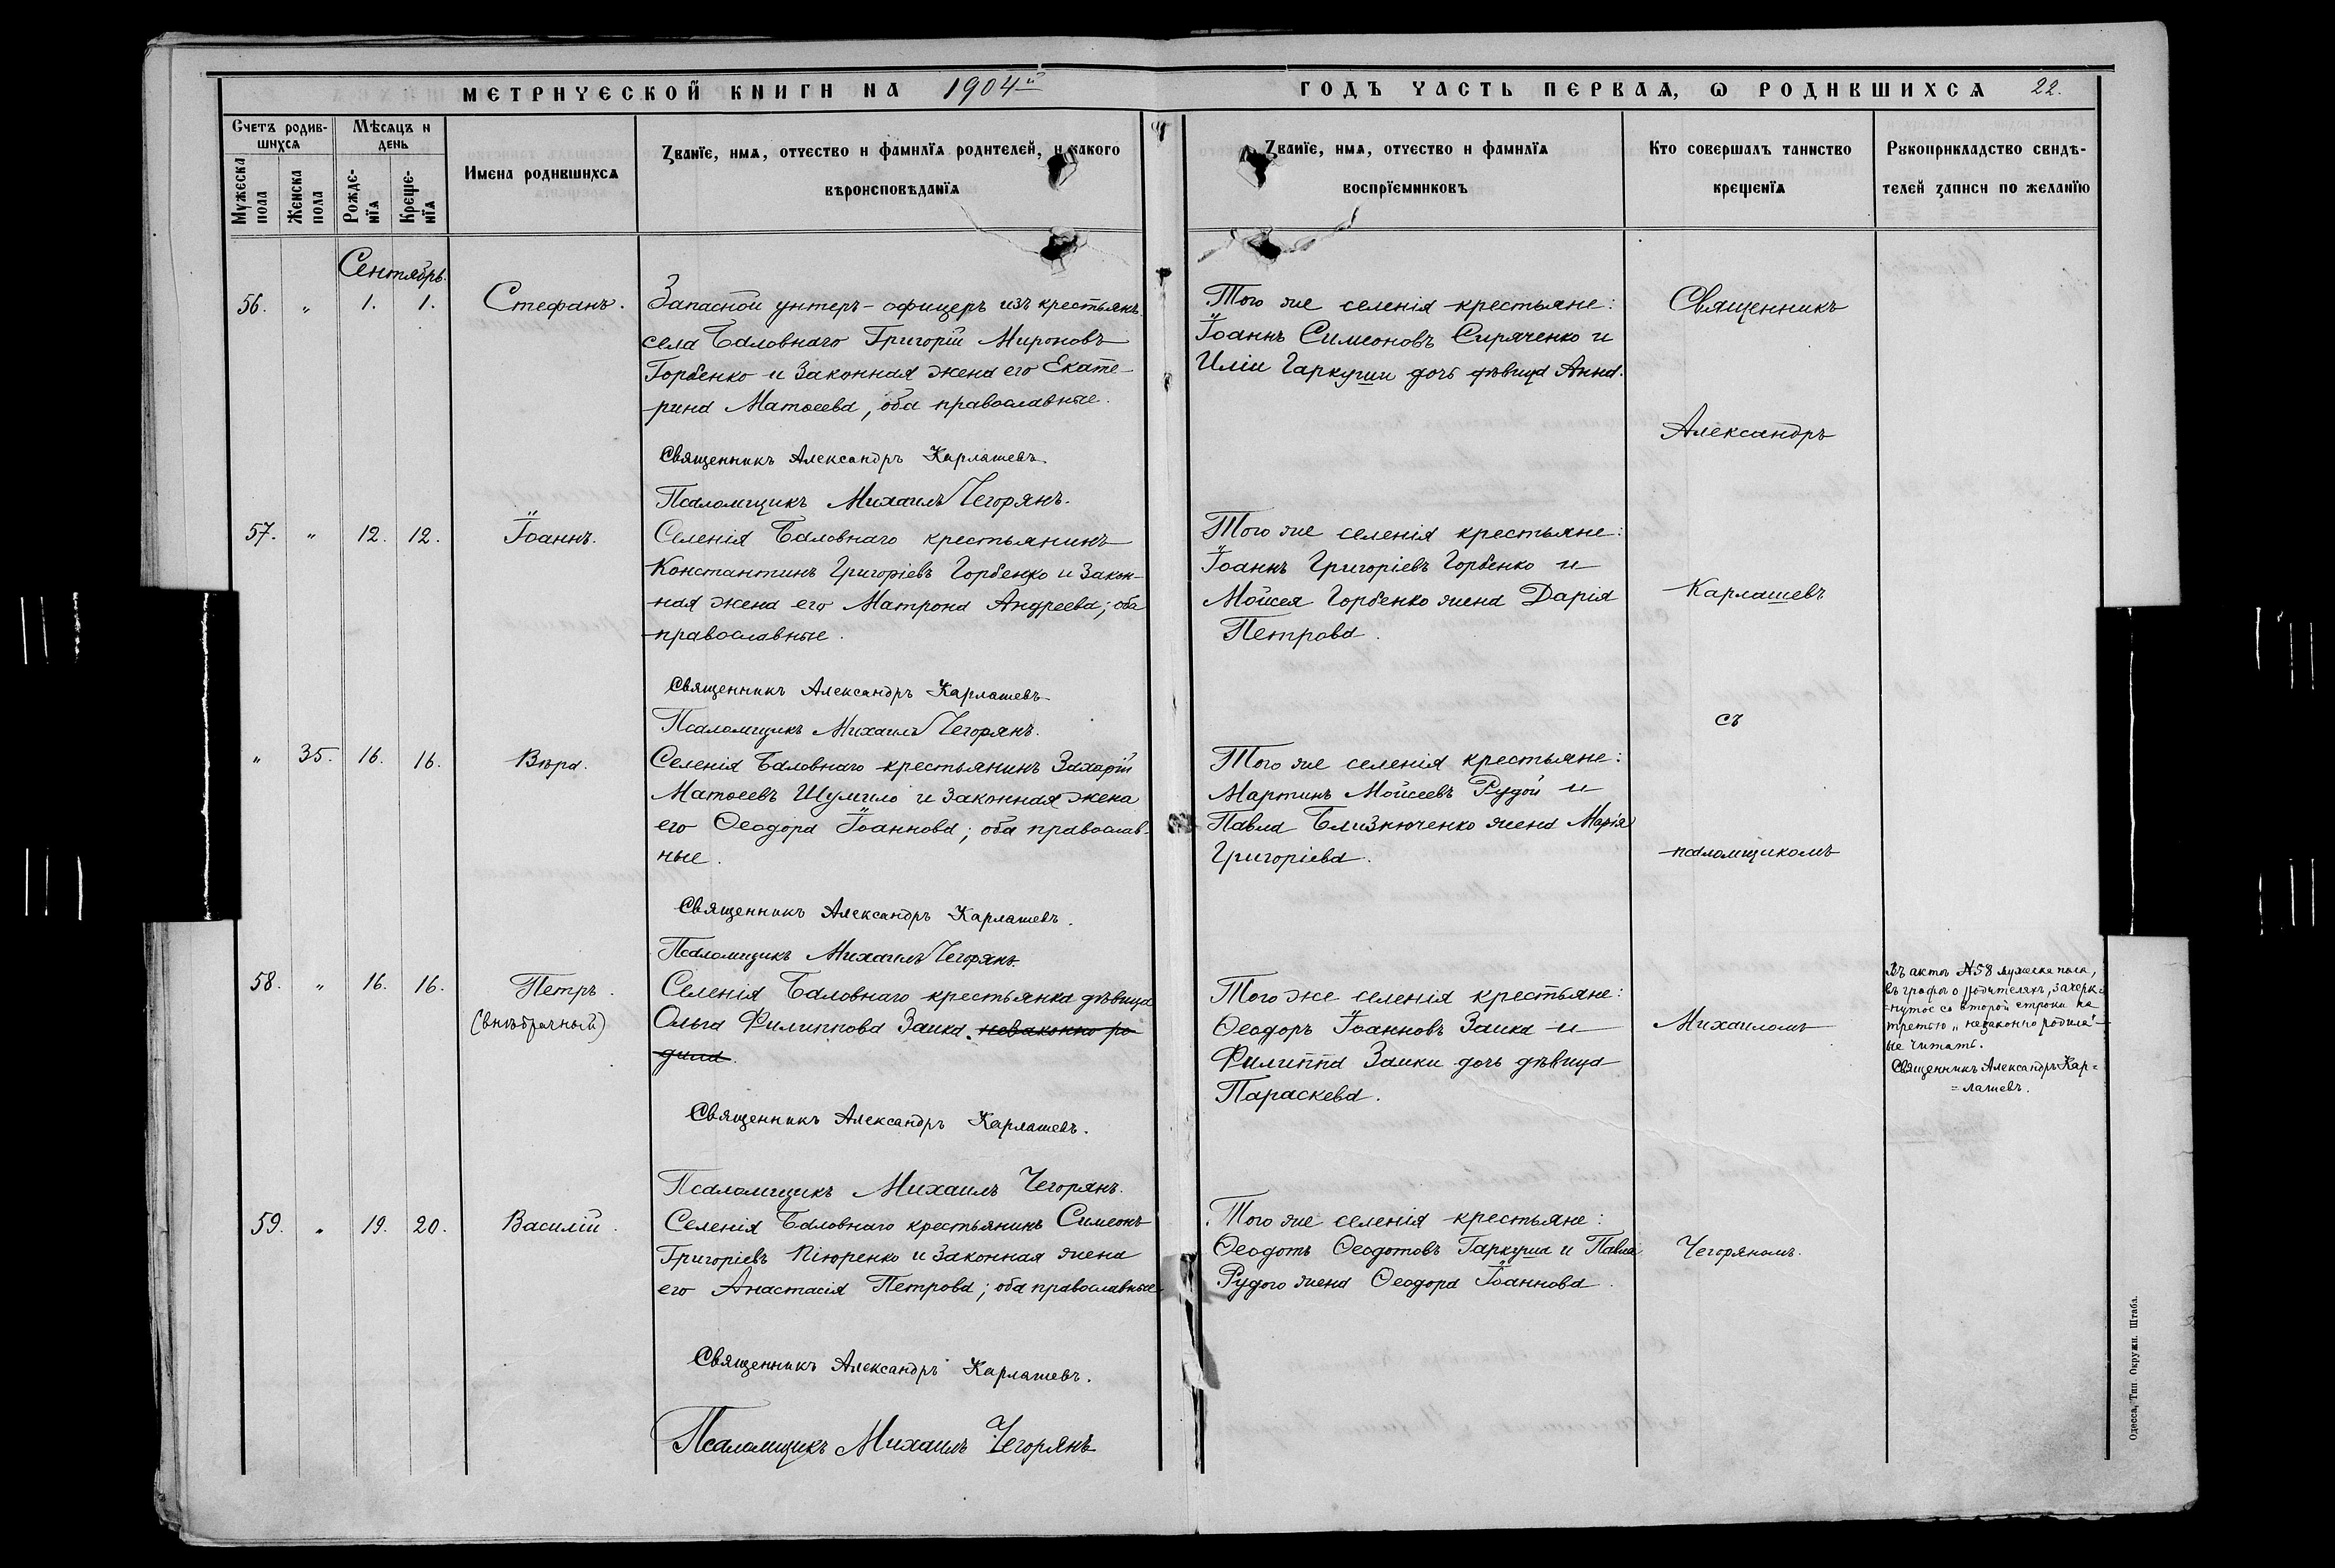 МЕТРИЧЕСКОЙ КНИГИ НА 1904й
ГОДЪ ЧАСТЬ ПЕРВАѦ, Ѡ РОДИВШИХСѦ 22.
Счетъ родив-
шихсѧ
Мѣсѧцъ и
день
Мужеска
пола
Женска
пола
Рожде-
нїѧ
Креще-
нїѧ
Имена родившихсѧ
Званїе, имѧ, отчество и фамилїѧ родителей, и какого
вѣроисповѣданїѧ
Званїе, имѧ, отчество и фамилїѧ
воспрїемниковъ
Кто совершалъ таинство
крещенїѧ
Рꙋкоприкладство свидѣ-
телей записи по желанїю
Сентябрь.
56. „ 1. 1. Стефанъ.
Запасной унтеръ-офицеръ изъ крестьянъ
села Баловнаго Григорій Мироновъ
Горбенко и законная жена его Екате-
рина Матѳеева, оба православные.
Священникъ Александръ Карлашевъ.
Псаломщикъ Михаилъ Чегорянъ.
Того же селенія крестьяне:
Іоаннъ Симеоновъ Сиряченко и
Иліи Гаркуши дочь дѣвица Анна.
Священникъ
Александръ
57. „ 12. 12. Іоаннъ.
Селенія Баловнаго крестьянинъ
Константинъ Григоріевъ Горбенко и закон-
ная жена его Матрона Андреева; оба
православные.
Священникъ Александръ Карлашевъ
Псаломщикъ Михаилъ Чегорянъ.
Того же селенія крестьяне:
Іоаннъ Григоріевъ Горбенко и
Мойсея Горбенко жена Дарія
Петрова.
Карлашевъ
съ
„ 35. 16. 16. Вѣра.
Селенія Баловнаго крестьянинъ Захарій
Матѳеевъ Шумило и законная жена
его Ѳеодора Іоаннова; оба православ-
ные.
Священникъ Александръ Карлашевъ.
Псаломщикъ Михаилъ Чегорянъ.
Того же селенія крестьяне:
Мартинъ Мойсеевъ Рудой и
Павла Близнюченко жена Марія
Григоріева.
псаломщикомъ
58. „ 16. 16. Петръ.
(внѣбрачный)
Селенія Баловнаго крестьянка дѣвица
Ольга Филиппова Заика. незаконно ро
дила.
Священникъ Александръ Карлашевъ.
Псаломщикъ Михаилъ Чегорянъ.
Того же селенія крестьяне:
Ѳеодоръ Іоанновъ Заика и
Филиппа Заики дочь дѣвица
Параскева.
Михаиломъ
Въ актѣ №58 мужеска пола,
въ графѣ о родителяхъ, зачерк-
=нутое со второй строки на
третью „незаконно родила"-
не читать.
Священникъ Александръ Кар=
=лашевъ.
59. „ 19. 20. Василій.
Селенія Баловнаго крестьянинъ Симеонъ
Григоріевъ Піюренко и законная жена
его Анастасія Петрова; оба православные.
Священникъ Александръ Карлашевъ.
Псаломщикъ Михаилъ Чегорянъ
Того же селенія крестьяне:
Ѳеодотъ Ѳеодотовъ Гаркуша и Павла
Рудого жена Ѳеодора Іоаннова.
Чегоряномъ.
Одесса, Тип. Окружн. Штаба.